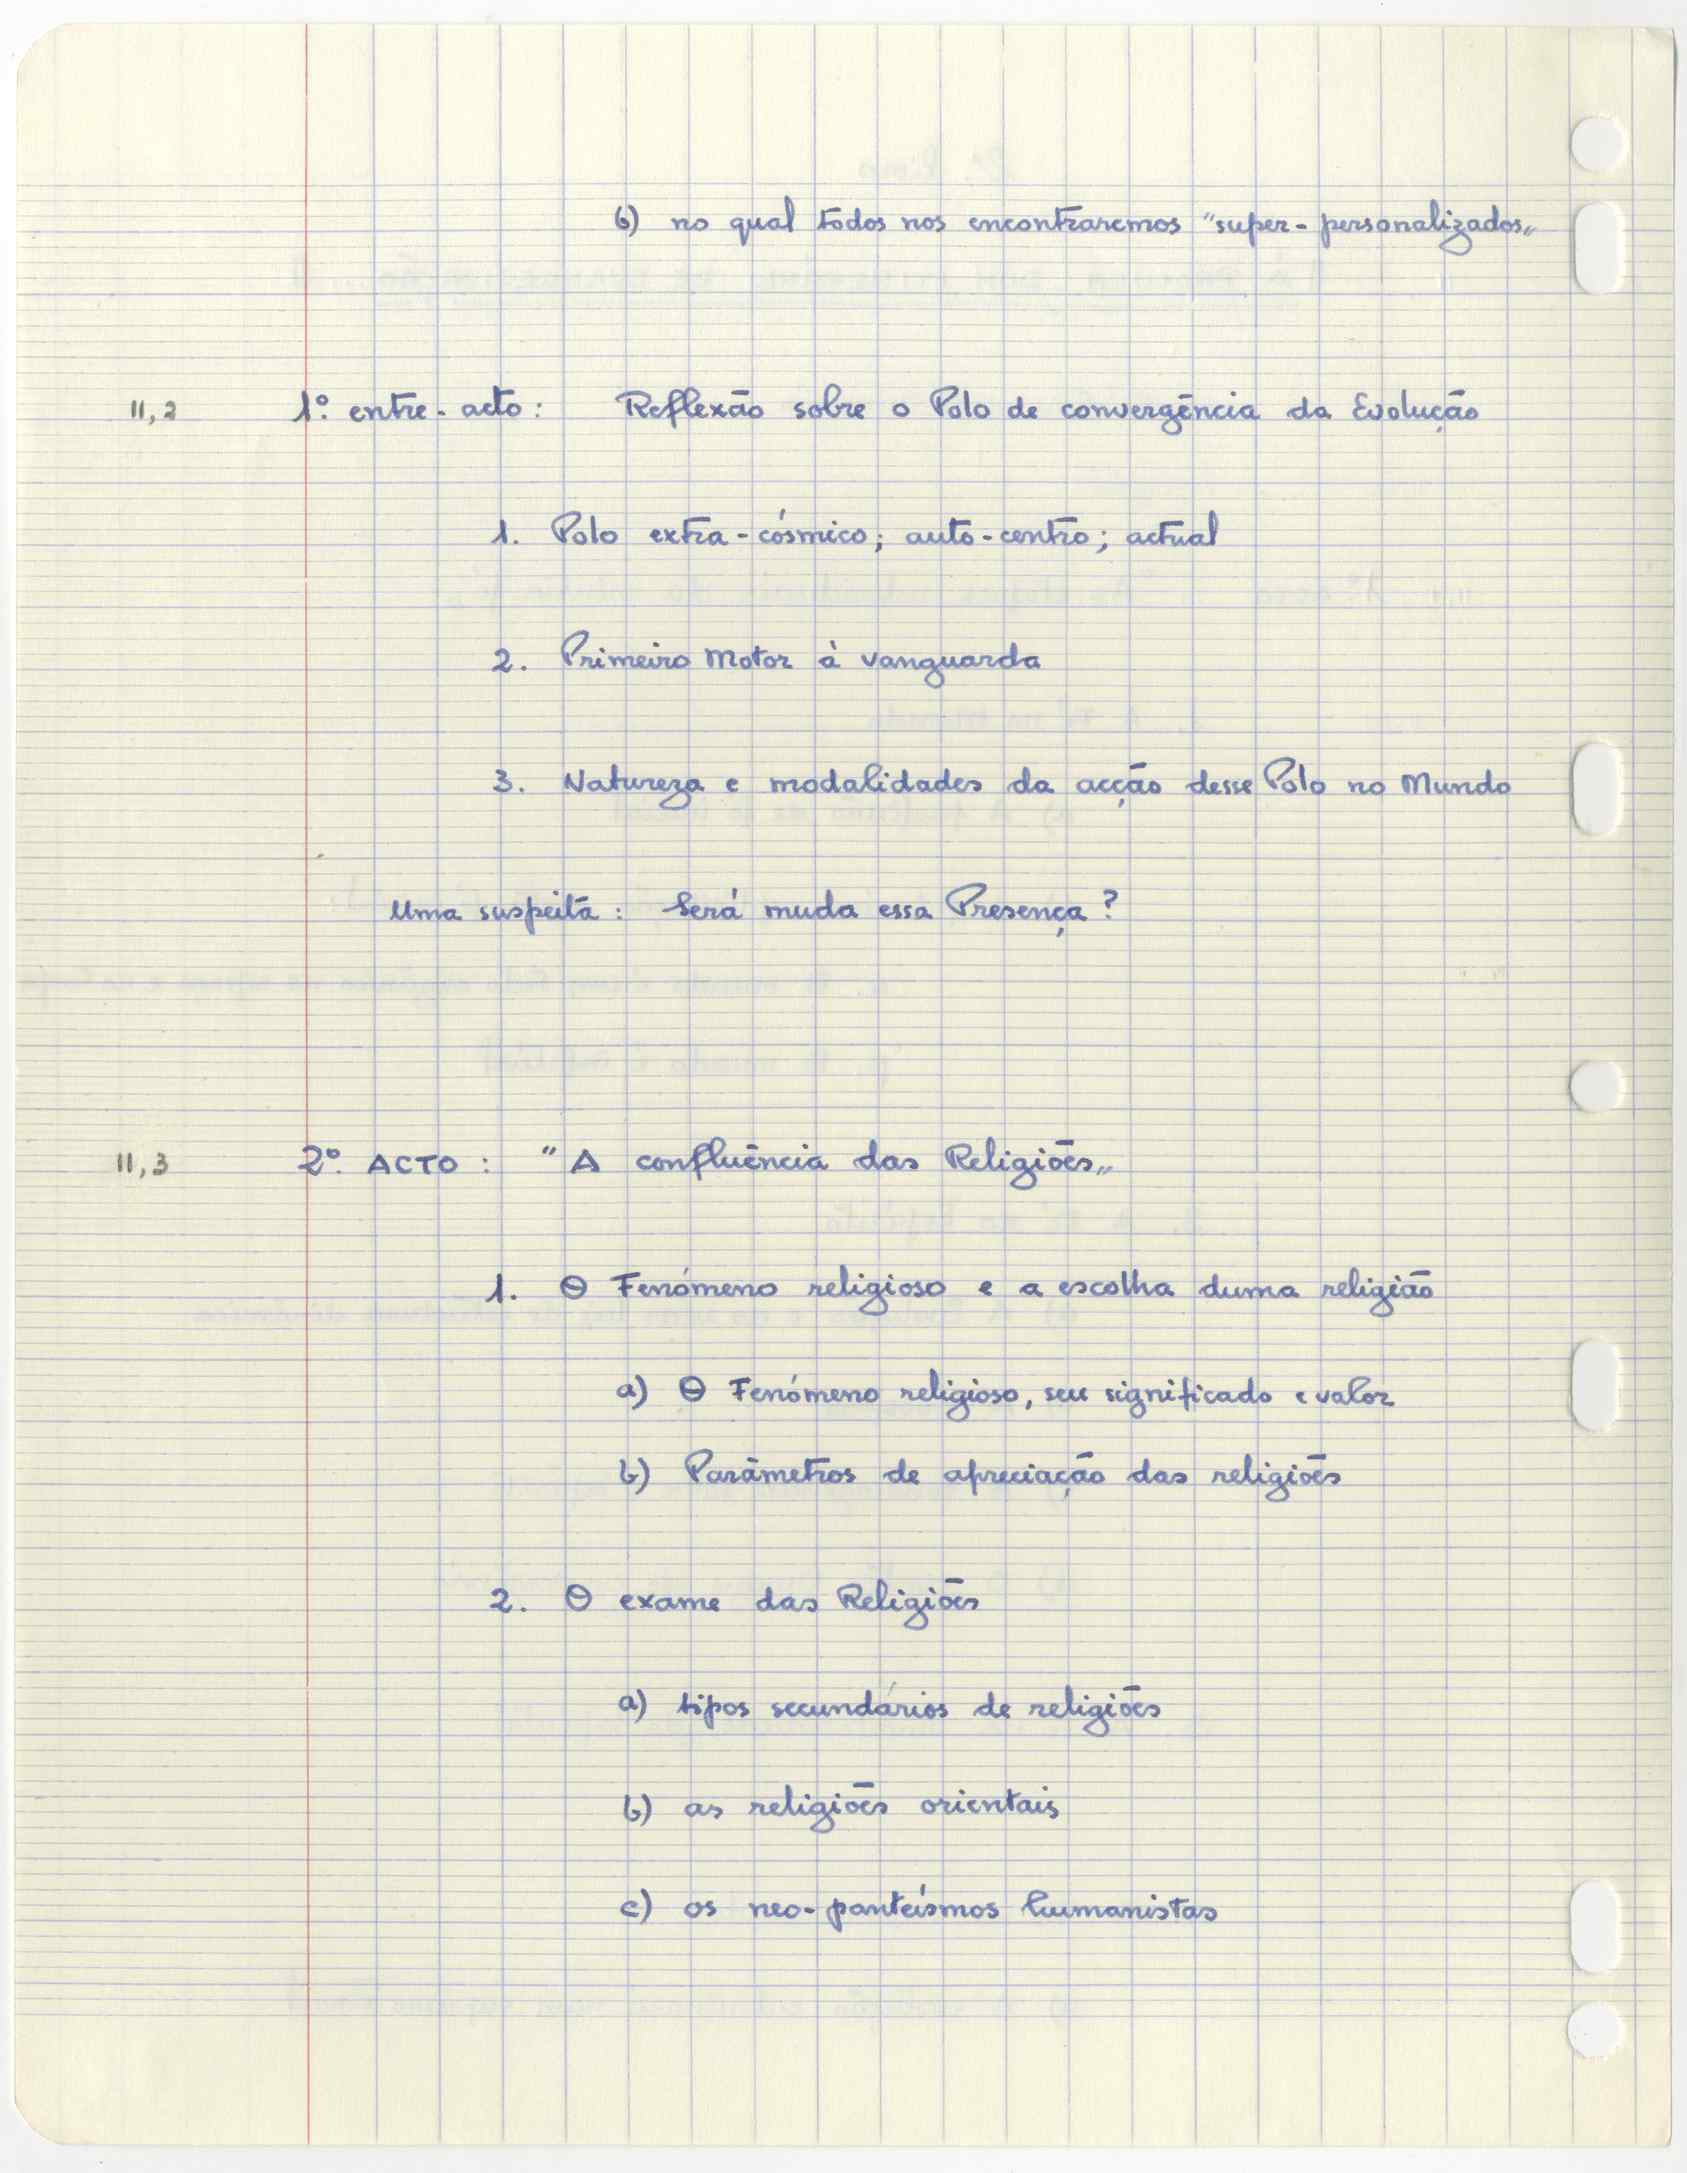 b) no qual todos nos encontraremos "super-personalizados"
11,2 1º. entre-acto: Reflexão sobre o Polo de convergência da Evolução
1. Polo extra-cósmico; auto-centro; actual
2. Primeiro Motor à vanguarda
3. Natureza e modalidades da acção desse Polo no Mundo
Uma suspeita: Será muda essa Presença?
11,3 2º. ACTO: "A confluência das Religiões"
1. O Fenómeno religioso e a escolha duma religião
a) O Fenómeno religioso, seu significado e valor
b) Parâmetros de apreciação das religiões
2. O exame das Religiões
a) tipos secundários de religiões
b) as religiões orientais
c) os neo-panteísmos humanistas